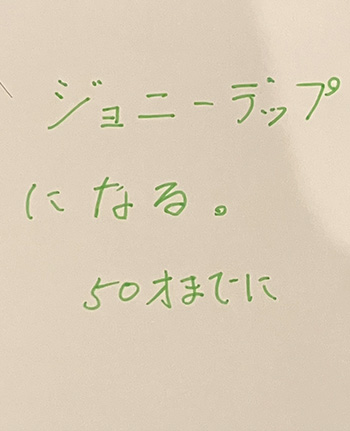 ジョニーデップ
になる。
50才までに